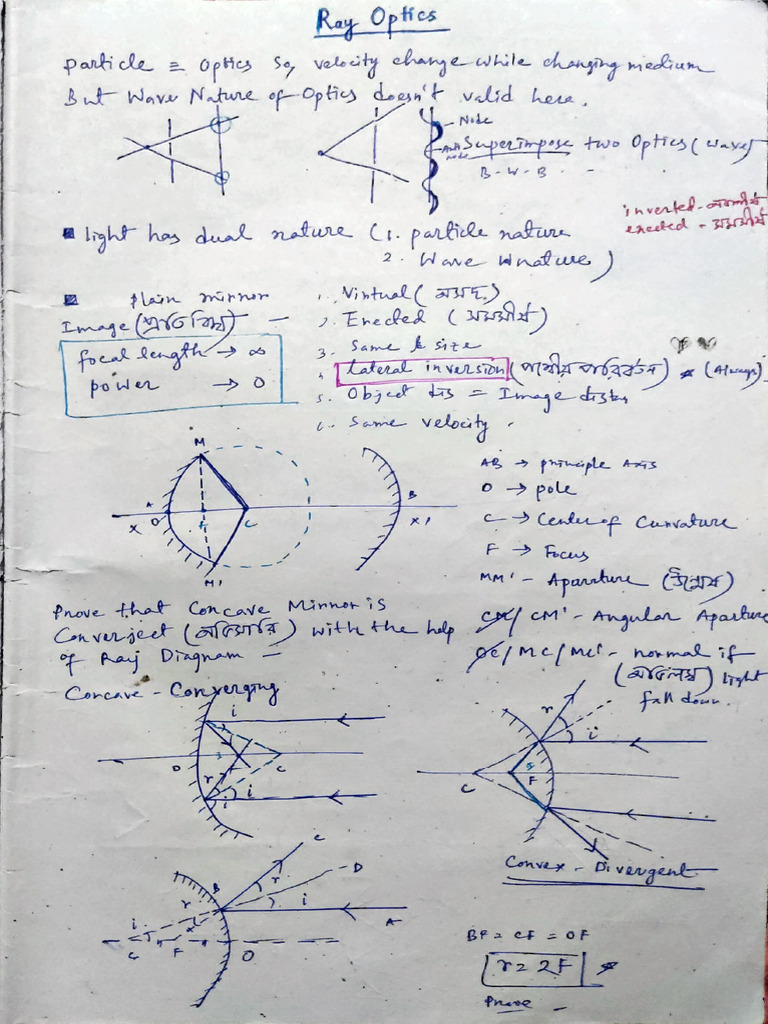 Ray Optics
Particle = Optics So, velocity change while changing medium
But Wave Nature of Optics doesn't valid here.
Node
Anti node
Superimpose two Optics (Wave)
B - W - B
inverted -
erected - সমশীর্ষ
light has dual nature (1. particle nature
2. Wave nature)
Plain mirror
Image (প্রতিবিম্ব) -
focal length → ∞
power → 0
1. Virtual (অসদ)
2. Erected (সমশীর্ষ)
3. Same size
4. Lateral inversion (পার্শ্বীয় পরিবর্তন) * (Always)
5. Object dis = Image distan
6. Same velocity.
M
A
O
X
F
C
M'
B
X'
AB → principle Axis
O → pole
C → Center of Curvature
F → Focus
MM' - Aparture (উন্মেষ)
CM/CM' - Angular Aparture
OC/MC/MC' - normal if
(অভিলম্ব) light
fall down.
Prove that Concave Mirror is
Converject (অভিসারি) with the help
of Ray Diagram -
Concave - Converging
i
r
O
C
r
i
i
r
i
C
F
Convex - Divergent
C
B
D
r
i
A
r
i
C
F
O
BF = CF = OF
r = 2F *
Prove -